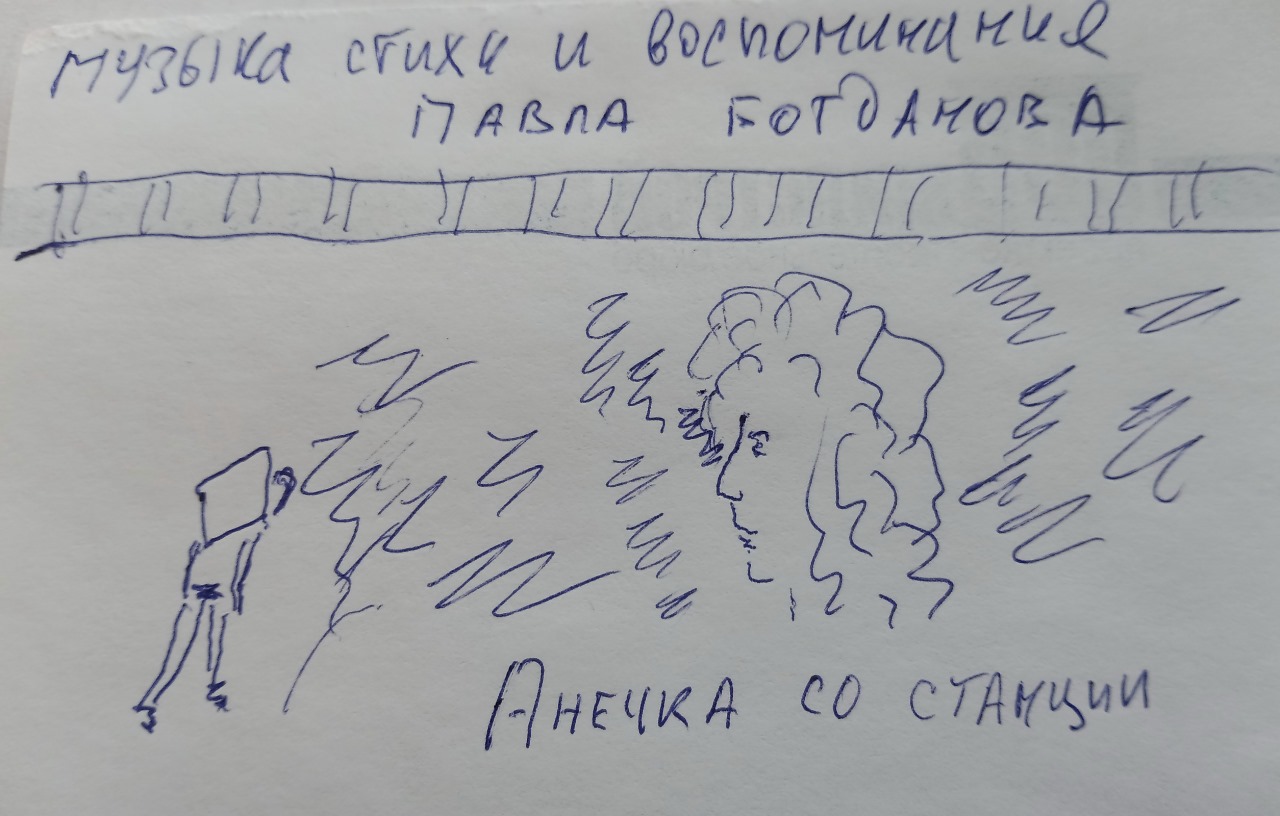 Музыка стихи и воспоминания
Павла Богданова
Анечка со станции